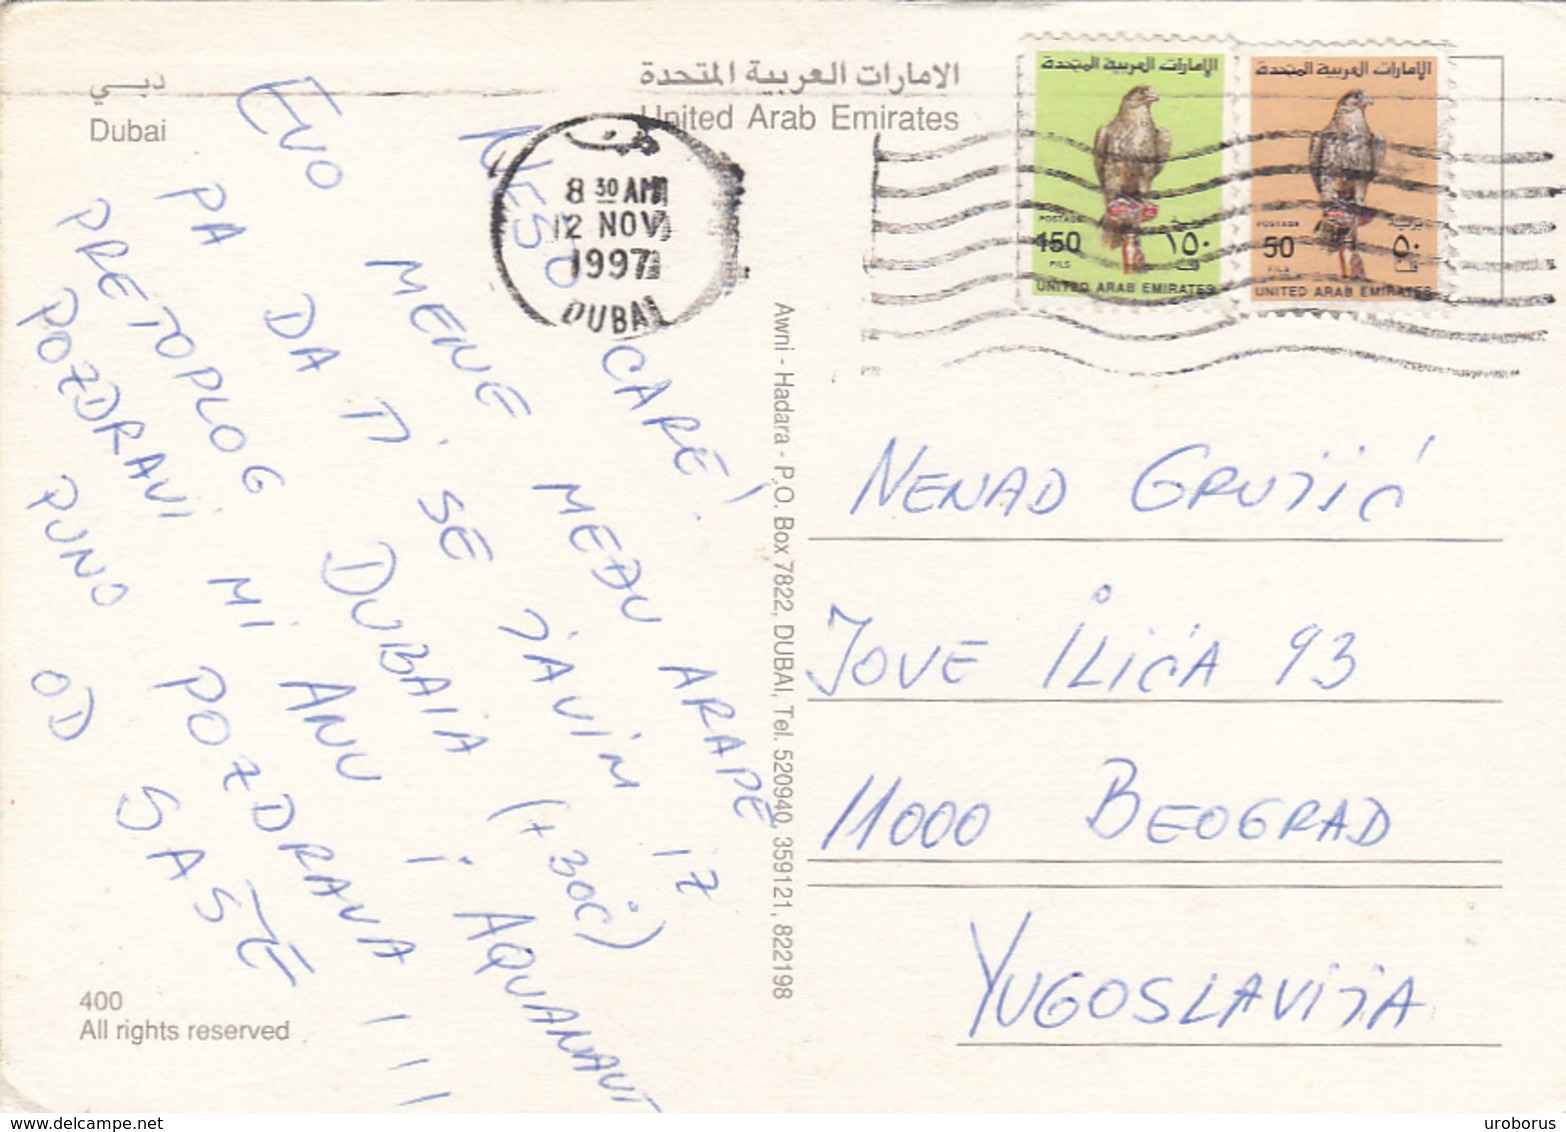 دبي
Dubai
الامارات العربية المتحدة
United Arab Emirates
الامارات العربية المتحدة
POSTAGE
بريد
150
١٥٠
FILS
فلس
UNITED ARAB EMIRATES
الامارات العربية المتحدة
POSTAGE
بريد
50
٥٠
FILS
فلس
UNITED ARAB EMIRATES
8 30 AM
12 NOV
1997
DUBAI
NEŠO CARE!
EVO MENE MEĐU ARAPE
PA DA TI SE JAVIM IZ
PRETOPLOG DUBAIA (+30C°)
POZDRAVI MI ANU I AQUANAUT
PUNO POZDRAVA !!!
OD SAŠE
Awni - Hadara - P.O. Box 7822, DUBAI, Tel. 520940, 359121, 822198
NENAD GRUJIĆ
JOVE ILIĆA 93
11000 BEOGRAD
YUGOSLAVIJA
400
All rights reserved
www.delcampe.net
uroborus